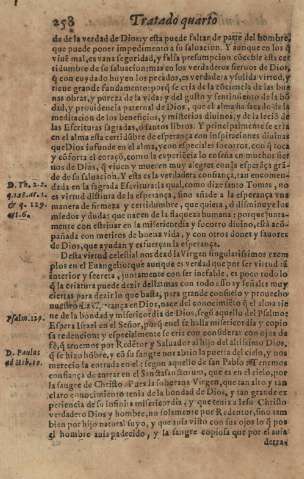 258 Tratado quarto
de de la verdad de Dios; y esta puede faltar de parte del hombre,
que puede poner impedimento a su saluacion. Y aunque en los q̃
viuẽ mal, es vana seguridad, y falsa presumpcion cõcebir esta cer
tidumbre de su saluacion: mas en los verdaderos sieruos de Dios,
q̃ con cuydado huyen los pecados, es verdadera y solida virtud, y
tiene grande fundamento: porq̃ se cria de la cõciencia de las bue
nas obras, y pureza de la vida, y del gusto y sentimiento de la bõ
dad, y prouidencia paternal de Dios, que el alma ha sacado de la
meditacion de los beneficios, y misterios diuinos, y de la lecciõ de
las Escrituras sagradas, o de santos libros. Y principalmente se cria
en el alma esta certidũbre de esperança con inspiraciones diuinas
que Dios infunde en el alma, y con especiales socorros, con q̃ toca
y cõforta el coraçõ, como la experiencia lo enseña en muchos sier
uos de Dios, q̃ viuen y mueren muy alegres con la esperãça grã
de de su saluacion. Y esta es la verdadera confiança, tan encomen-
D. Th. 2. 2. dada en la sagrada Escritura: la qual, como dize santo Tomas, no
q. 128. ar. 1. es virtud distinta de la esperança, sino añade a la esperança vna
& q. 129. manera de firmeza y certidumbre, que quieta, y disminuye los
art. 6. miedos y dudas que nacen de la flaqueza humana: porque junta-
mente con estribar en la misericordia y socorro diuino, està acõ-
pañada con meritos de buena vida, y con otros dones y fauores
de Dios, que ayudan y esfuerçan la esperança.
Desta virtud celestial nos dexò la Virgen singularissimos exem
plos en el Euangelio: que aunque es verdad que por ser virtud in
terior y secreta, juntamente con ser inefable, es poco todo lo
q̃ la criatura puede dezir della: mas con todo esso ay señales muy
ciertas para dezir lo que basta, para grande consuelo y prouecho
nuestro. La esperança en Dios, nace del conocimiẽto q̃ el alma tie
Psalm. 129. ne de la bondad y misericordia de Dios, segũ aquello del Psalmo:
Espera Israel en el Señor, porq̃ en el se halla misericordia y copio
sa redencion: y especialmente se cria con considerar con ojos de
fè, q̃ tenemos por Redẽtor y Saluador al hijo del altissimo Dios,
D. Paulus q̃ se hizo hõbre, y cõ su sangre nos abrio la puerta del cielo, y nos
ad Heb. 10. merecio la entrada en el: segun aquello de san Pablo: Tenemos
confiança de entrar en el Sanctasanctorum, que es en el cielo, por
la sangre de Christo. Pues la soberana Virgen, que tan alto y tan
claro conocimiento tenia de la bondad de Dios, y tan grande ex
periencia de su infinita misericordia, y que tenia a Iesu Christo
verdadero Dios y hombre, no solamente por Redentor, sino tam
bien por hijo natural suyo, y que auia visto con sus ojos lo q̃ por
el hombre auia padecido, y la sangre copiosa que por el auia
derra-